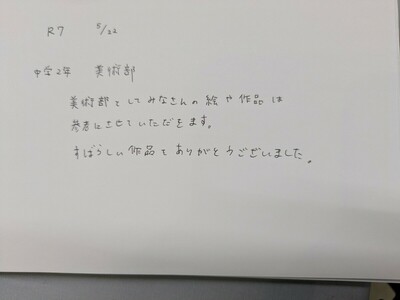 R7 5/22
中学2年 美術部
美術部としてみなさんの絵や作品は
参考にさせていただきます。
すばらしい作品をありがとうございました。